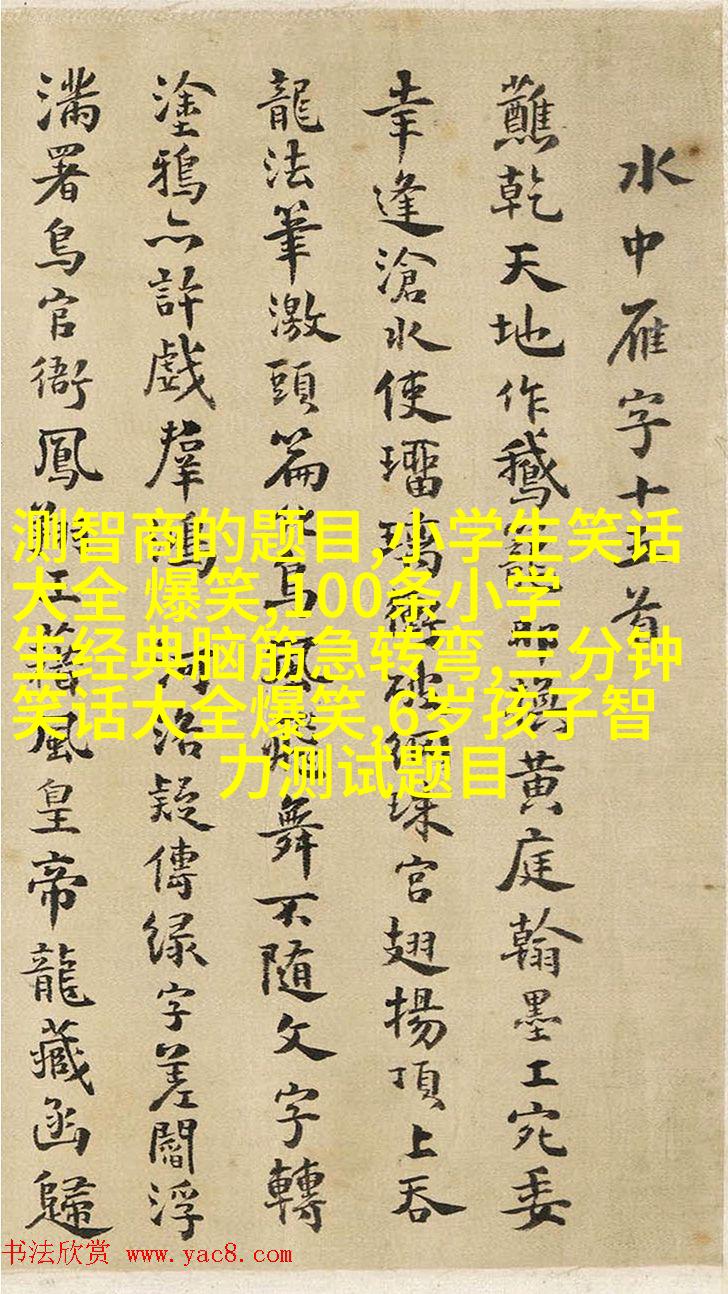 水中雁字十五首
蘸乾天地作鵝籠 郎議黃庭翰墨工宛委
幸逢滄水使璠璃 破網珠宮翅揚頂上吞
龍法筆激頭篇 鳥 舞不隨文字轉
塗鴉亦許戲群鴻 河洛疑傳綠字差閻浮
滿署鳥官銜鳳 風皇帝龍藏函歸
测智商的题目,小学生笑话
大全 爆笑,100条小学
生经典脑筋急转弯,三分钟
笑话大全爆笑,6岁孩子智
力测试题目
书法欣赏 www.yac8.com